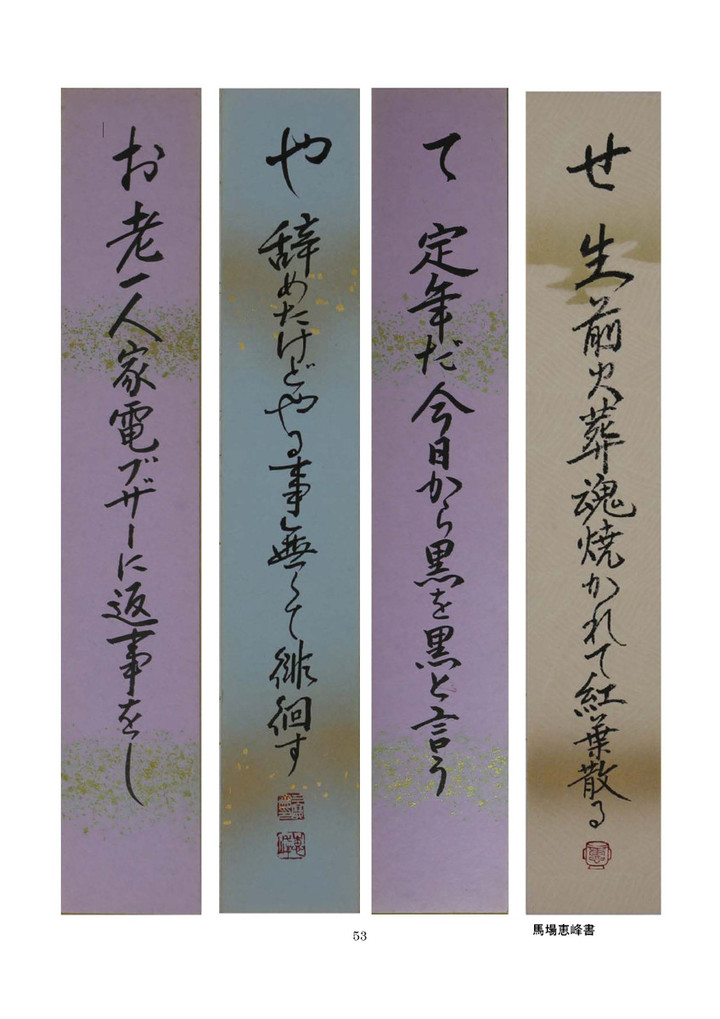 せ 生前火葬魂焼かれて紅葉散る
て 定年だ今日から黒を黒と言う
や 辞めたけどやる事無くて徘徊す
お 老一人家電ブザーに返事をし
馬場恵峰書
53